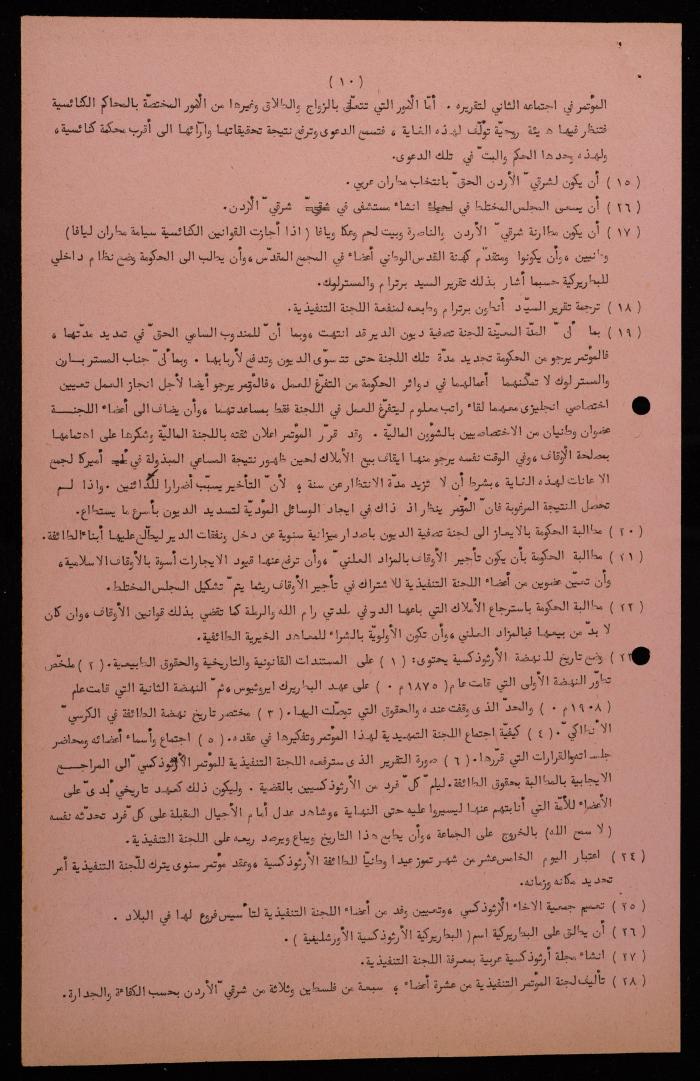 ( ١٠ )
المؤتمر في اجتماعه الثاني لتقريره . أمّا الأمور التي تتعلّق بالزواج والطلاق وغيرها من الأمور المختصّة بالمحاكم الكنائسية
فتنظر فيها هيئة روحيّة تؤلّف لهذه الغاية ، فتسمع الدعوى وترفع نتيجة تحقيقاتها وآرائها الى أقرب محكمة كنائسية ،
ولهذه وحدها الحكم والبتّ في تلك الدعوى.
( ١٥ ) أن يكون لشرقيّ الأردن الحقّ بانتخاب مطران عربي .
( ٢٦ ) أن يسعى المجلس المختلط في انشاء مستشفى في شرقيّ الأردن.
( ١٧ ) أن يكون مطارنة شرقيّ الأردن والناصرة وبيت لحم وعكا ويافا ( اذا أجازت القوانين الكنائسية سيامة مطران ليافا )
وطنيين ، وأن يكونوا ومتقدّم كهنة القدس الوطني أعضاء في المجمع المقدّس ، وأن يطلب الى الحكومة وضع نظام داخلي
للبطريركية حسبما أشار بذلك تقرير السيد برترام والمسترلوك.
( ١٨ ) ترجمة تقرير السيّد أنطون برترام وطبعه لمنفعة اللجنة التنفيذية .
( ١٩ ) بما أنّ المدّة المعيّنة للجنة تصفية ديون الدير قد انتهت ، وبما أنّ للمندوب السامي الحقّ في تمديد مدّتها ،
فالمؤتمر يرجو من الحكومة تجديد مدّة تلك اللجنة حتى تتسوّى الديون وتدفع لأربابها . وبما أنّ جناب المستر بارن
والمستر لوك لا تمكّنهما أعمالهما في دوائر الحكومة من التفرّغ للعمل ، فالمؤتمر يرجو أيضا لأجل انجاز العمل تعيين
اختصاصي انجليزي معهما لقاء راتب معلوم ليتفرّغ للعمل في اللجنة فقط بمساعدتهما ، وأن يضاف الى أعضاء اللجنة
عضوان وطنيان من الاختصاصيين بالشؤون الماليّة . وقد قرّر المؤتمر اعلان ثقته باللجنة الماليّة وشكرها على اهتمامها
بمصلحة الأوقاف ، وفي الوقت نفسه يرجو منها ايقاف بيع الأملاك لحين ظهور نتيجة المساعي المبذولة في أميركا لجمع
الاعانات لهذه الغاية ، بشرط أن لا تزيد مدّة الانتظار عن سنة ؛ لأنّ التأخير يسبّب أضرارا للدّائنين . واذا لم
تحصل النتيجة المرغوبة فانّ المؤتمر ينظر اذ ذاك في ايجاد الوسائل المؤديّة لتسديد الديون بأسرع ما يستطاع.
( ٢٠ ) مطالبة الحكومة بالايعاز الى لجنة تصفية الديون باصدار ميزانية سنوية عن دخل ونفقات الدير ليطّلع عليها أبناء الطائفة.
( ٢١ ) مطالبة الحكومة بأن يكون تأجير الأوقاف بالمزاد العلنيّ ، وأن ترفع عنها قيود الايجارات أسوة بالأوقاف الاسلامية ،
وأن تعيّن عضوين من أعضاء اللجنة التنفيذية للاشتراك في تأجير الأوقاف ريثما يتمّ تشكيل المجلس المختلط.
( ٢٢ ) مطالبة الحكومة باسترجاع الأملاك التي باعها الدير في بلدتي رام الله والرملة كما تقضي بذلك قوانين الأوقاف ، وان كان
لا بدّ من بيعها فبالمزاد العلني ، وأن تكون الأولويّة بالشراء للمعاهد الخيرية الطائفية.
( ٢٣ ) وضع تاريخ للنهضة الأرثوذكسية يحتوى: ( ١ ) على المستندات القانونية والتاريخية والحقوق الطبيعية. ( ٢ ) ملخّص
تطوّر النهضة الأولى التي قامت عام ( ١٨٧٥ م . ) على عهد البطريرك ايروثيوس ، ثمّ النهضة الثانية التي قامت عام
( ١٩٠٨ م . ) والحدّ الذى وقفت عنده والحقوق التي توصّلت اليها. ( ٣ ) مختصر تاريخ نهضة الطائفة في الكرسيّ
الأنطاكيّ. ( ٤ ) كيفيّة اجتماع اللجنة التمهيدية لهذا المؤتمر وتفكيرها في عقده. ( ٥ ) اجتماع وأسماء أعضائه ومحاضر
جلساته والقرارات التي قرّرها. ( ٦ ) صورة التقرير الذى سترفعه اللجنة التنفيذية للمؤتمر الأرثوذكسيّ الى المراجع
الايجابية بالمطالبة بحقوق الطائفة. ليلمّ كلّ فرد من الأرثوذكسيين بالقضية . وليكون ذلك كعهد تاريخيّ أبدىّ على
الأعضاء للأمّة التي أنابتهم عنها ليسيروا عليه حتى النهاية ، وشاهد عدل أمام الأجيال المقبلة على كلّ فرد تحدّثه نفسه
( لا سمح الله ) بالخروج على الجماعة ، وأن يطبع هذا التاريخ ويباع ويرصد ريعه على اللجنة التنفيذية.
( ٢٤ ) اعتبار اليوم الخامس عشر من شهر تموز عيدا وطنيّا للطائفة الأرثوذكسية ، وعقد مؤتمر سنوى يترك للّجنة التنفيذية أمر
تحديد مكانه وزمانه.
( ٢٥ ) تعميم جمعية الاخاء الأرثوذكسي ، وتعيين وفد من أعضاء اللجنة التنفيذية لتأسيس فروع لها في البلاد .
( ٢٦ ) أن يطلق على البطريركية اسم ( البطريركية الأرثوذكسية الأورشليمية ) .
( ٢٧ ) انشاء مجلة أرثوذكسية عربية بمعرفة اللجنة التنفيذية.
( ٢٨ ) تأليف لجنة المؤتمر التنفيذية من عشرة أعضاء ؛ سبعة من فلسطين وثلاثة من شرقيّ الأردن بحسب الكفاءة والجدارة.